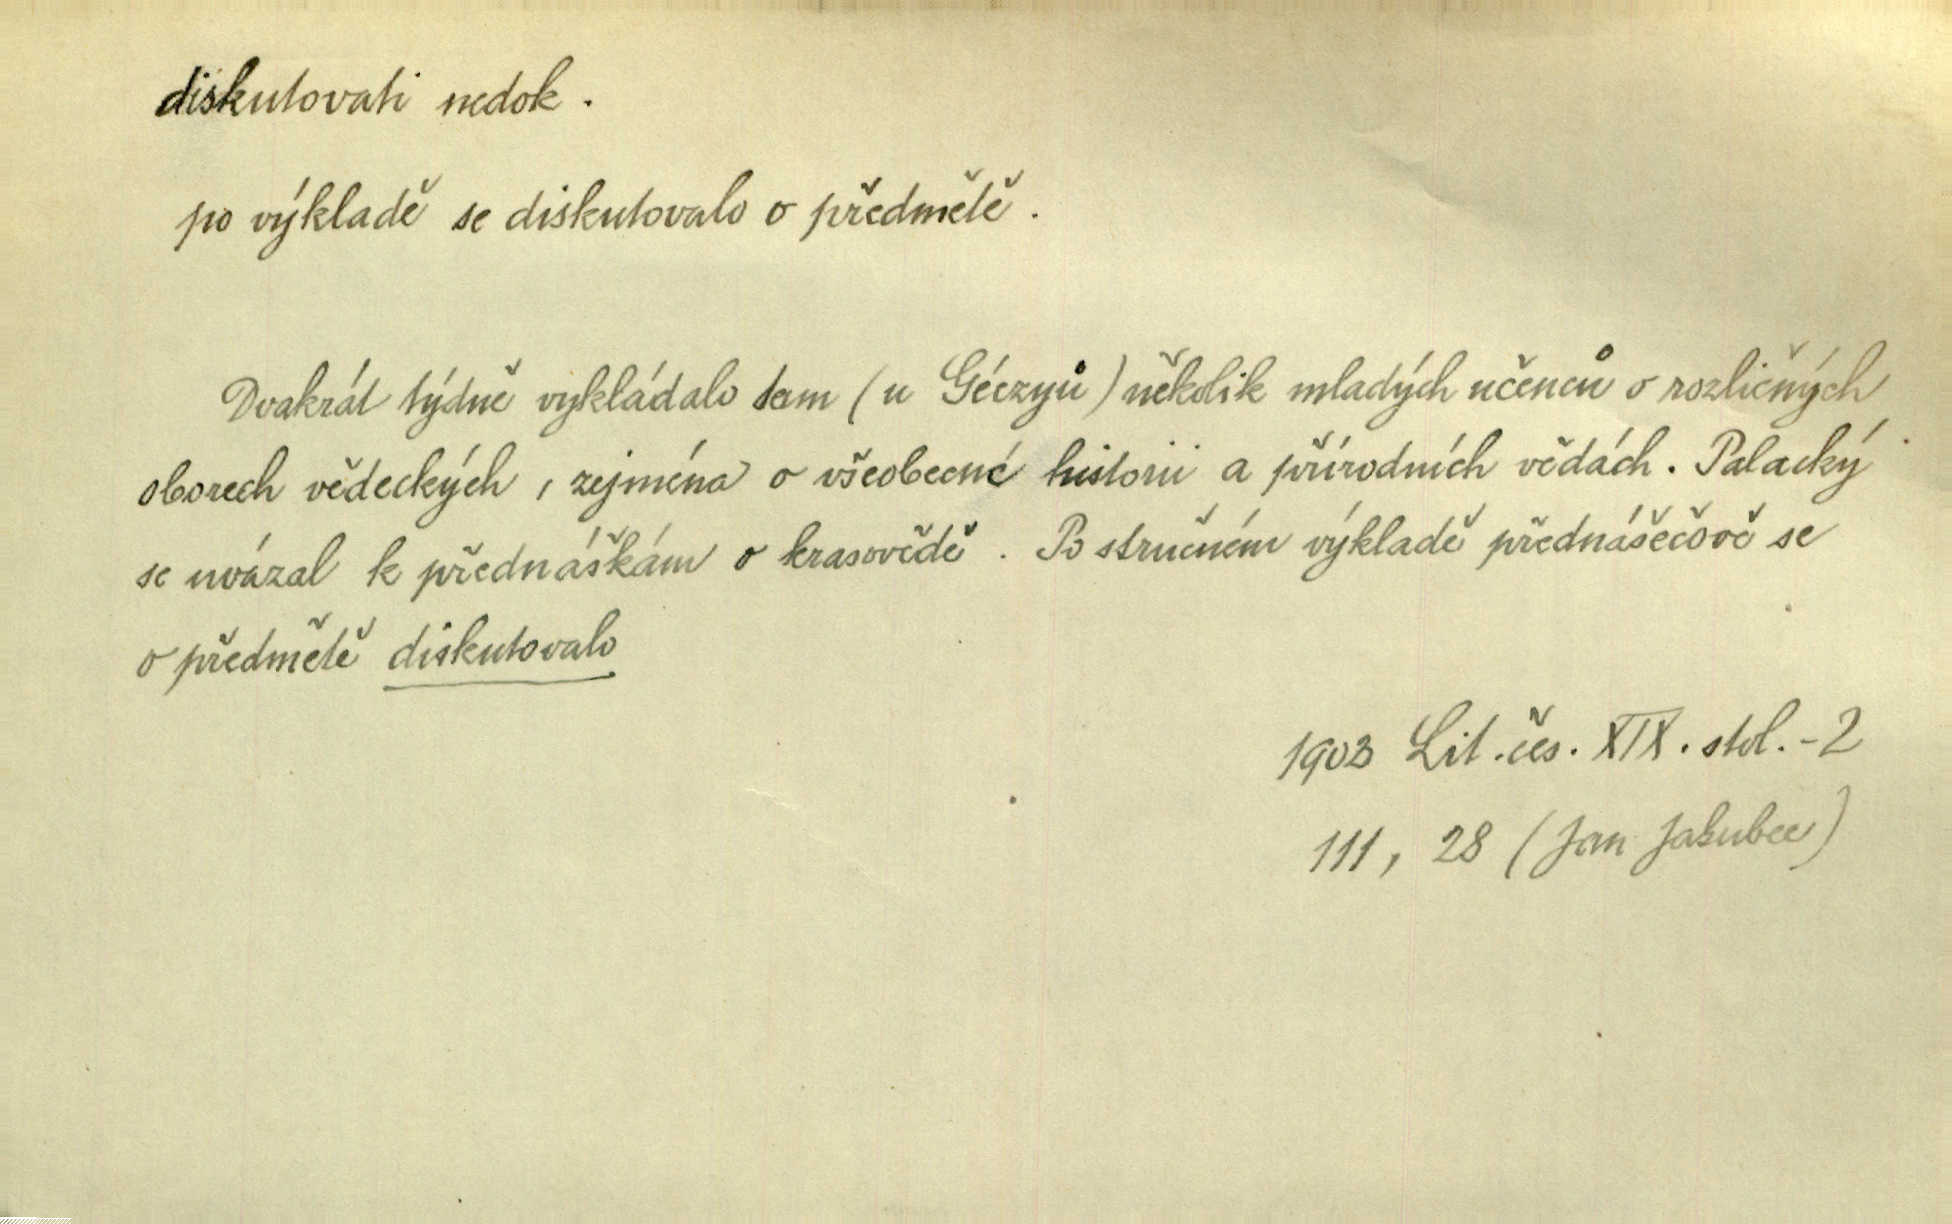 diskutovati nedok.
po výkladě se diskutovalo o předmětě.
Dvakrát týdně vykládalo tam (u Géczyů) několik mladých učenců o rozličných
oborech vědeckých, zejména o všeobecné historii a přírodních vědách. Palacký
se uvázal k přednáškám o krasovědě. Po stručném výkladě přednášečově se
o předmětě diskutovalo
1903 Lit. čes. XIX. stol. - 2
111, 28 (Jan Jakubec)